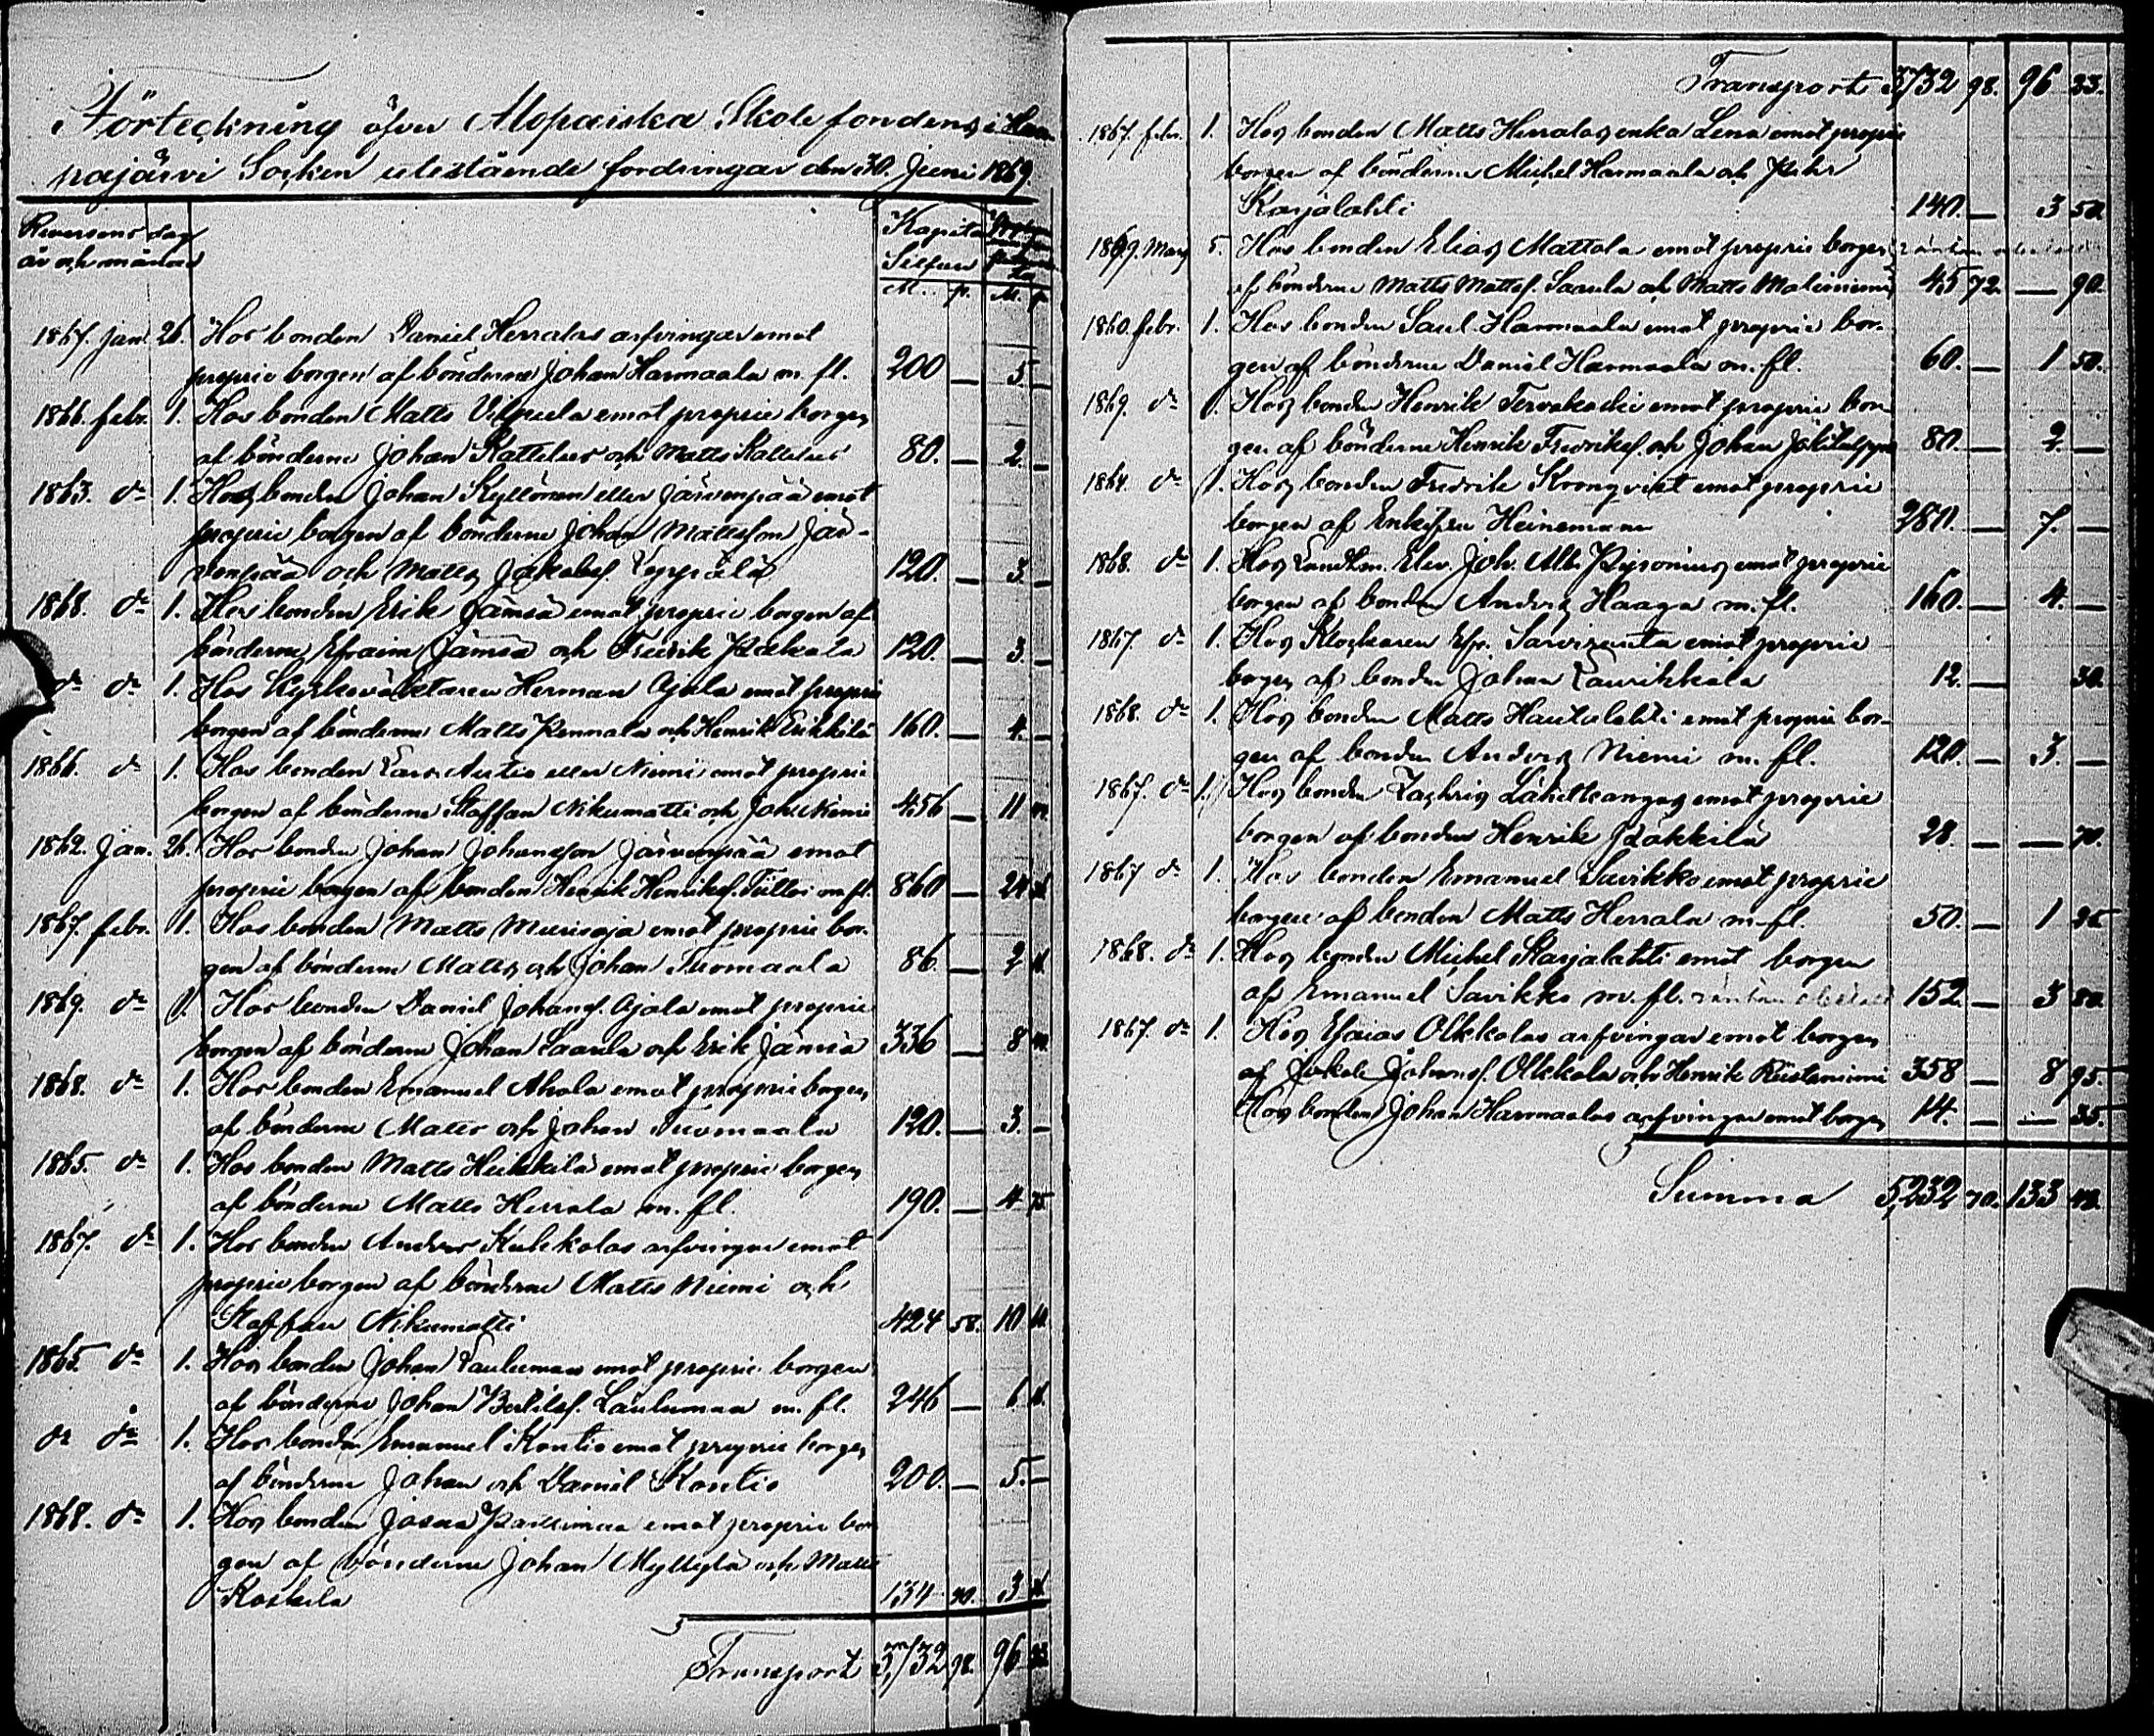 Förteckning öfver Alopæiska Skolefondens i Haa-
pajärvi Socken utestående fordringar den 30. Juni 1869.
Reversens dag
år och månad
Kapital
Silfver
M. p. M. p.
1867. jan. 26. Hos bonden Daniel Herralas arfvingar emot
proprie borgen af bönderne Johan Harmaala m. fl. 200 — 5 —
1866. febr. 1. Hos bonden Matts Vilpula emot proprie borgen
af bönderne Johan Kattelus och Matts Kattelus 80. — 2. —
1863. do 1. Hos bonden Johan Kyllönen eller Järvenpää emot
proprie borgen af bönderne Johan Mattsson Jär-
venpää och Matts Jakobss. Leppälä 120. — 3. —
1868. do 1. Hos bonden Erik Jämsä emot proprie borgen af
bönderne Efraim Jämsä och Fredrik Pakala 120. — 3. —
do do 1. Hos Kyrkoväktaren Herman Ojala emot proprie
borgen af bönderne Matts Pennala och Henrik Erikkilä 160. — 4. —
1866. do 1. Hos bonden Lars Autio eller Niemi emot proprie
borgen af bönderne Staffan Nikumatti och Joh. Niemi 456 — 11
1862. Jan. 26. Hos bonden Johan Johansson Järvenpää emot
proprie borgen af bonden Henrik Henrikss. Tiitto m. fl. 860 — 24
1867. febr. 1. Hos bonden Matts Murisoja emot proprie bor-
gen af bönderne Matts och Johan Tuomaala 86. — 2
1869. do 1. Hos bonden Daniel Johanss. Ojala emot proprie
borgen af bönderne Johan Saarela och Erik Jämsä 336 — 8
1868. do 1. Hos bonden Emanuel Ahola emot proprie borgen
af bönderne Matts och Johan Tuomaala 120. — 3. —
1865. do 1. Hos bonden Matts Heikkilä emot proprie borgen
af bönderne Matts Herrala m. fl. 190. — 4 75
1867. do 1. Hos bonden Anders Kukkolas arfvingar emot
proprie borgen af bönderne Matts Niemi och
Staffan Nikumatti 424 58. 10
1865. do 1. Hos bonden Johan Laulumaa emot proprie borgen
af bönderne Johan Bertilss. Laulumaa m. fl. 246 — 6
do do 1. Hos bonden Emanuel Kontio emot proprie borgen
af bönderne Johan och Daniel Kontio 200. — 5. —
1868. do 1. Hos bonden Josua emot proprie bor-
gen af bönderne Johan Myllylä och Matts
Koskela 134 40. 3
Transport 3,732 98. 96 23.
Transport 3,732 98. 96 23.
1867. febr. 1. Hos bonden Matts Herralas enka Lena emot proprie
borgen af bönderne Michel Harmaala och Pehr
Karjalahti 140. — 3 50
1869. Mars 5. Hos bonden Elias Mattola emot proprie borgen
af bönderne Matts Mattss. Saarela och Matts Malinniemi 45 72. — 90.
1860. febr. 1. Hos bonden Saul Harmaala emot proprie bor-
gen af bönderne Daniel Harmaala m. fl. 60. — 1 50.
1869. do 1. Hos bonden Henrik Tervakoski emot proprie bor-
gen af bönderne Henrik Fredrikss. och Johan Jokitalppo 80. — 2. —
1864. do 1. Hos bonden Fredrik Kronqvist emot proprie
borgen af Enkefru Heinemann 280. — 7. —
1868. do 1. Hos Landtm. Elev. Joh. Alb. Piponius emot proprie
borgen af bonden Anders Haaga m. fl. 160. — 4. —
1867. do 1. Hos Klockaren Esp. Sarviranta emot proprie
borgen af bonden Johan Laurikkala 12. — 30.
1868. do 1. Hos bonden Matts Hautalahti emot proprie bor-
gen af bonden Anders Niemi m. fl. 120. — 3. —
1867. do 1. Hos bonden Zachris Lähetkangas emot proprie
borgen af bonden Henrik Pakkila 28. — — 70.
1867 do 1. Hos bonden Emanuel Savikko emot proprie
borgen af bonden Matts Herrala m. fl. 50. — 1 25
1868. do 1. Hos bonden Michel Karjalahti emot borgen
af Emanuel Savikko m. fl. räntan obetald 152. — 3 80.
1867. do 1. Hos Esaias Olkkolas arfvingar emot borgen
af Jakob Johanss. Olkkola och Henrik Ristaniemi 358 — 8 95.
Hos bonden Johan Harmaalas arfvingar emot borgen 14. — — 35.
Summa 5,232 70. 133 48.